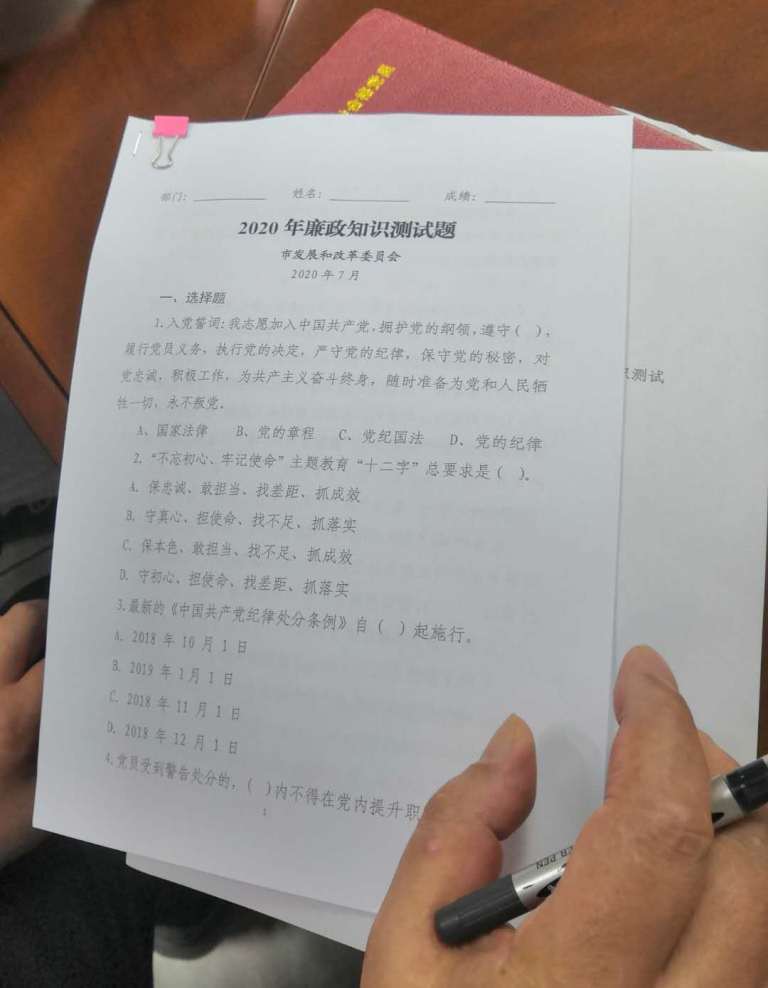 部门： 姓名： 成绩：
2020 年廉政知识测试题
市发展和改革委员会
2020 年 7 月
一、选择题
1.入党誓词：我志愿加入中国共产党，拥护党的纲领，遵守（ ），
履行党员义务，执行党的决定，严守党的纪律，保守党的秘密，对
党忠诚，积极工作，为共产主义奋斗终身，随时准备为党和人民牺
牲一切，永不叛党.
A、国家法律 B、党的章程 C、党纪国法 D、党的纪律
2.“不忘初心、牢记使命”主题教育“十二字”总要求是（ ）。
A. 保忠诚、敢担当、找差距、抓成效
B. 守真心、担使命、找不足、抓落实
C. 保本色、敢担当、找不足、抓成效
D. 守初心、担使命、找差距、抓落实
3.最新的《中国共产党纪律处分条例》自（ ）起施行。
A. 2018 年 10 月 1 日
B. 2019 年 1 月 1 日
C. 2018 年 11 月 1 日
D. 2018 年 12 月 1 日
4.党员受到警告处分的，（ ）内不得在党内提升职
1
测试
PEN